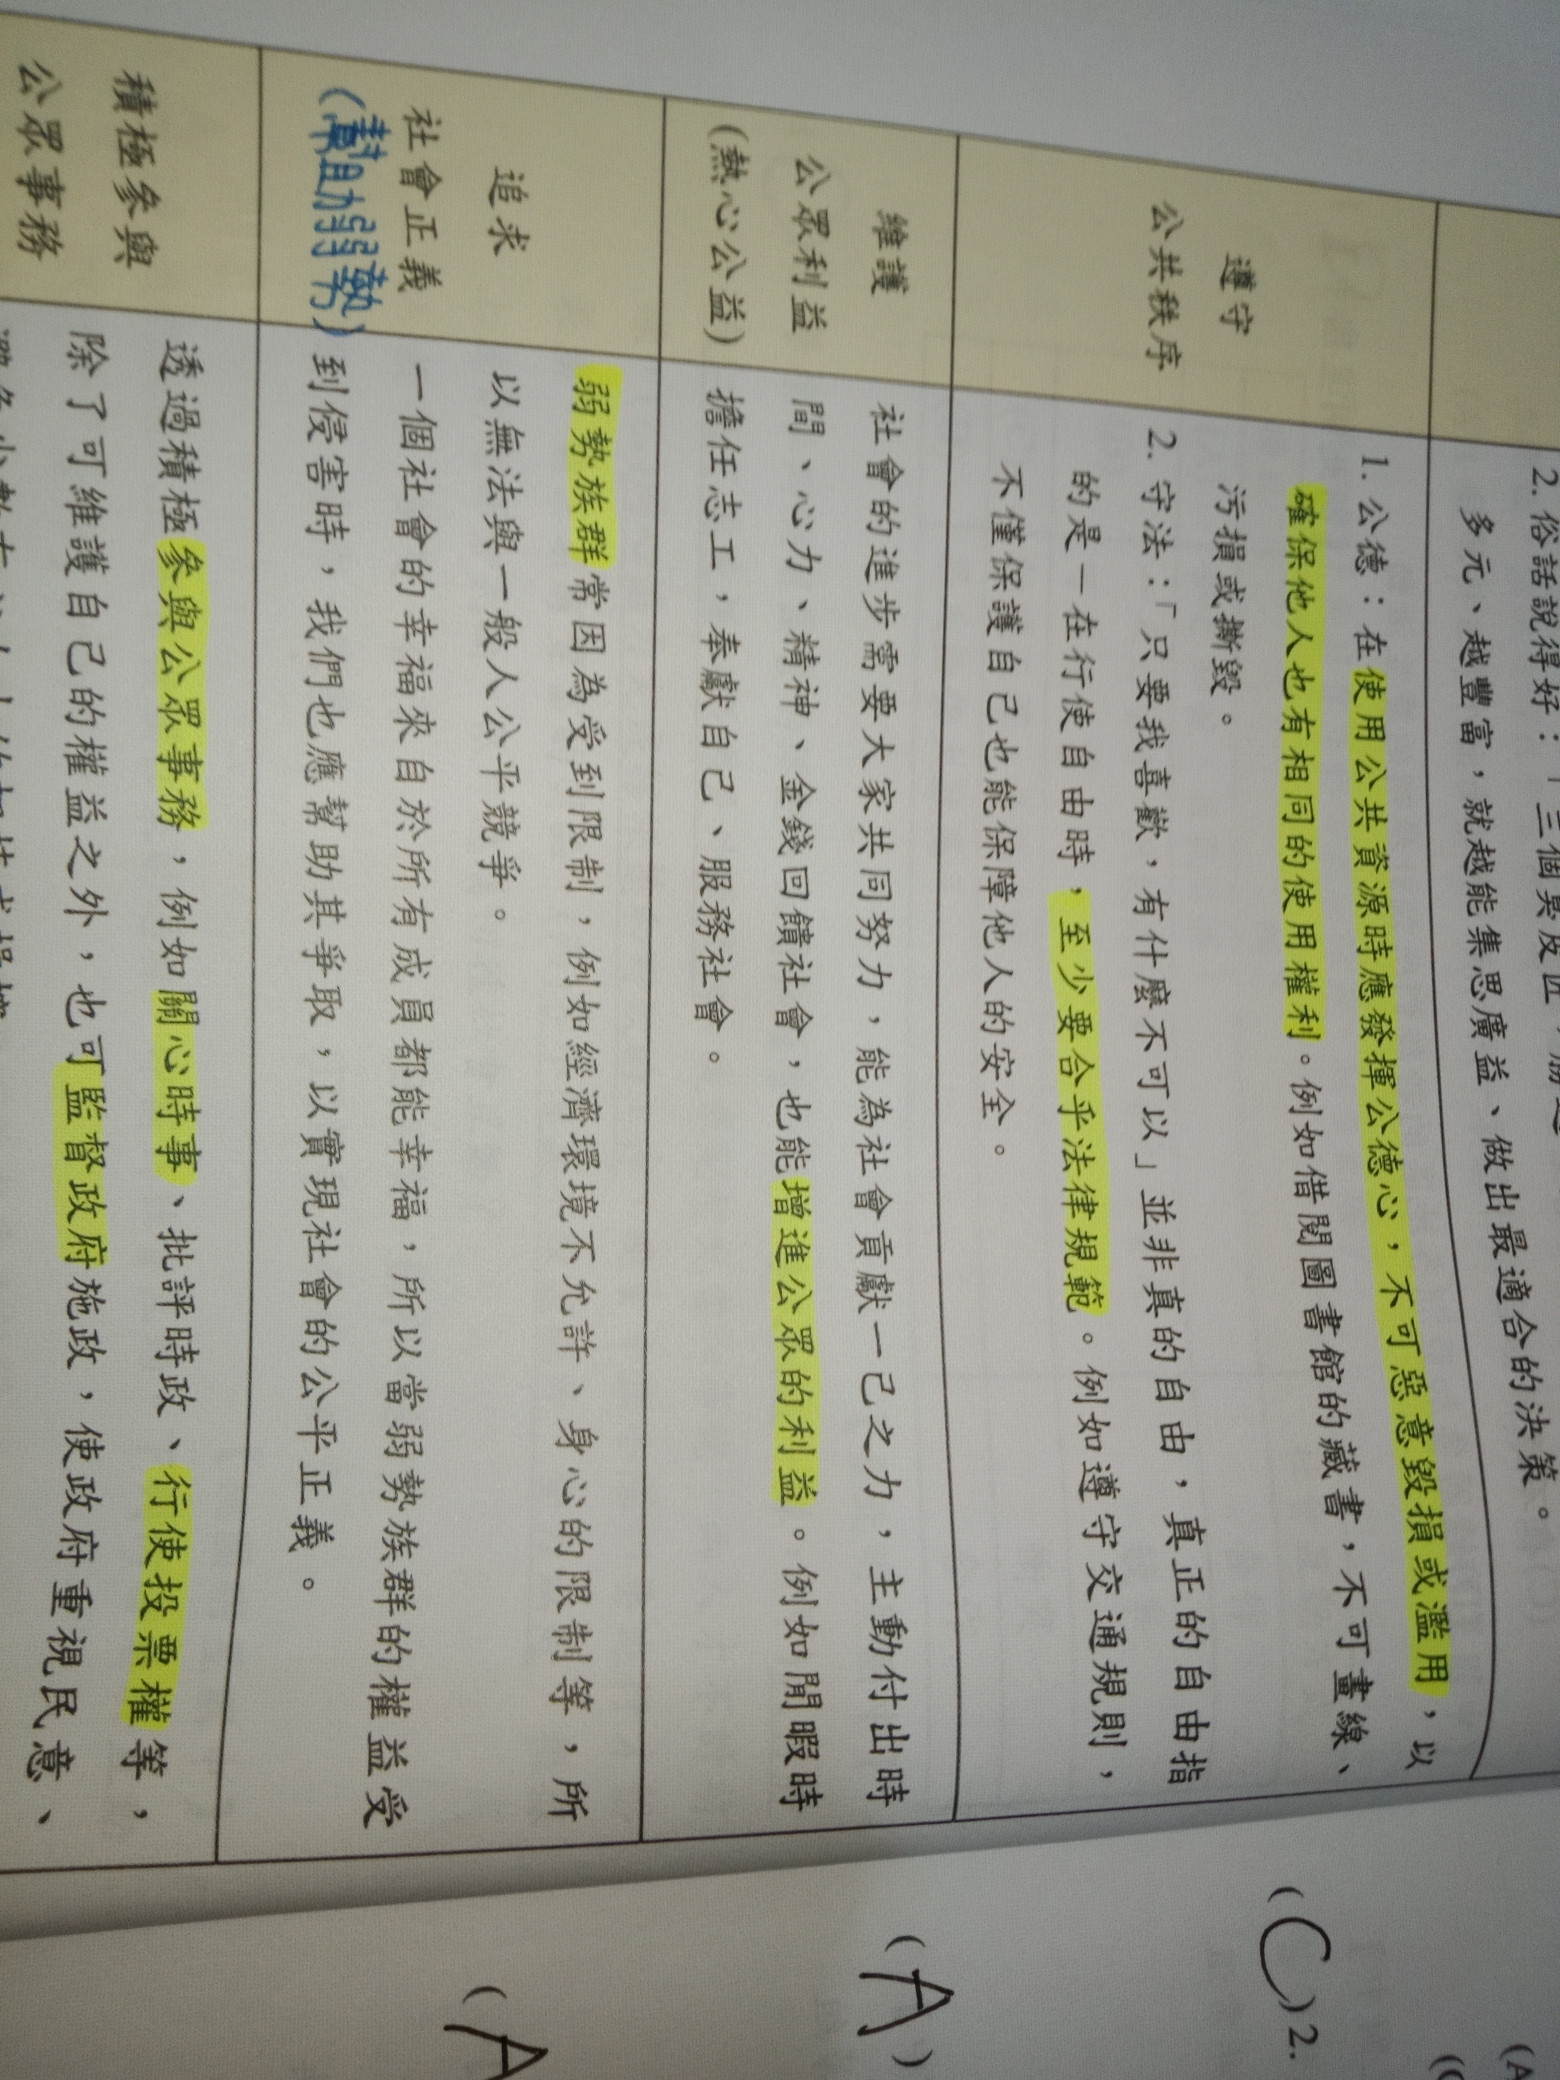 2. 俗話說得好：「三個臭皮匠，勝過
多元、越豐富，就越能集思廣益、做出最適合的決策。
遵守
公共秩序
1. 公德：在使用公共資源時應發揮公德心，不可惡意毀損或濫用，以
確保他人也有相同的使用權利。例如借閱圖書館的藏書，不可畫線、
污損或撕毀。
2. 守法：「只要我喜歡，有什麼不可以」並非真的自由，真正的自由指
的是—在行使自由時，至少要合乎法律規範。例如遵守交通規則，
不僅保護自己也能保障他人的安全。
維護
公眾利益
(熱心公益)
社會的進步需要大家共同努力，能為社會貢獻一己之力，主動付出時
間、心力、精神、金錢回饋社會，也能增進公眾的利益。例如閒暇時
擔任志工，奉獻自己、服務社會。
追求
社會正義
(幫助弱勢)
弱勢族群常因為受到限制，例如經濟環境不允許、身心的限制等，所
以無法與一般人公平競爭。
一個社會的幸福來自於所有成員都能幸福，所以當弱勢族群的權益受
到侵害時，我們也應幫助其爭取，以實現社會的公平正義。
積極參與
公眾事務
透過積極參與公眾事務，例如關心時事、批評時政、行使投票權等，
除了可維護自己的權益之外，也可監督政府施政，使政府重視民意、
(A
(C
(C) 2.
(A)
(A